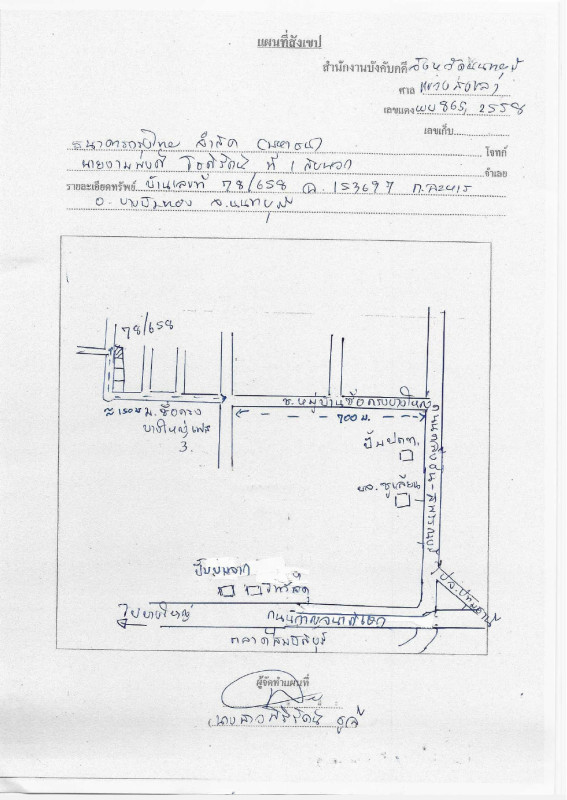 แผนที่สังเขป
สำนักงานบังคับคดี จังหวัดนนทบุรี
ศาล
เลขแดง ผบ 865, 2558
เลขเก็บ
ธนาคารกรุงไทย จำกัด (มหาชน) โจทก์
ที่ 1 กับพวก จำเลย
รายละเอียดทรัพย์ บ้านเลขที่ 78/658 ฉ. 153697 ต.ละหาร
อ. บางบัวทอง จ.นนทบุรี
78/658
ซ.หมู่บ้านซื่อตรงบางใหญ่
700 ม.
ม.ซื่อตรง
บางใหญ่เฟส
3.
ปั๊ม ปตท.
ถนนตลิ่งชัน-สุพรรณบุรี
ปั๊มบางจาก
ไปบางใหญ่
ถนนกาญจนาภิเษก
ไป จ.ปทุมธานี
ผู้จัดทำแผนที่